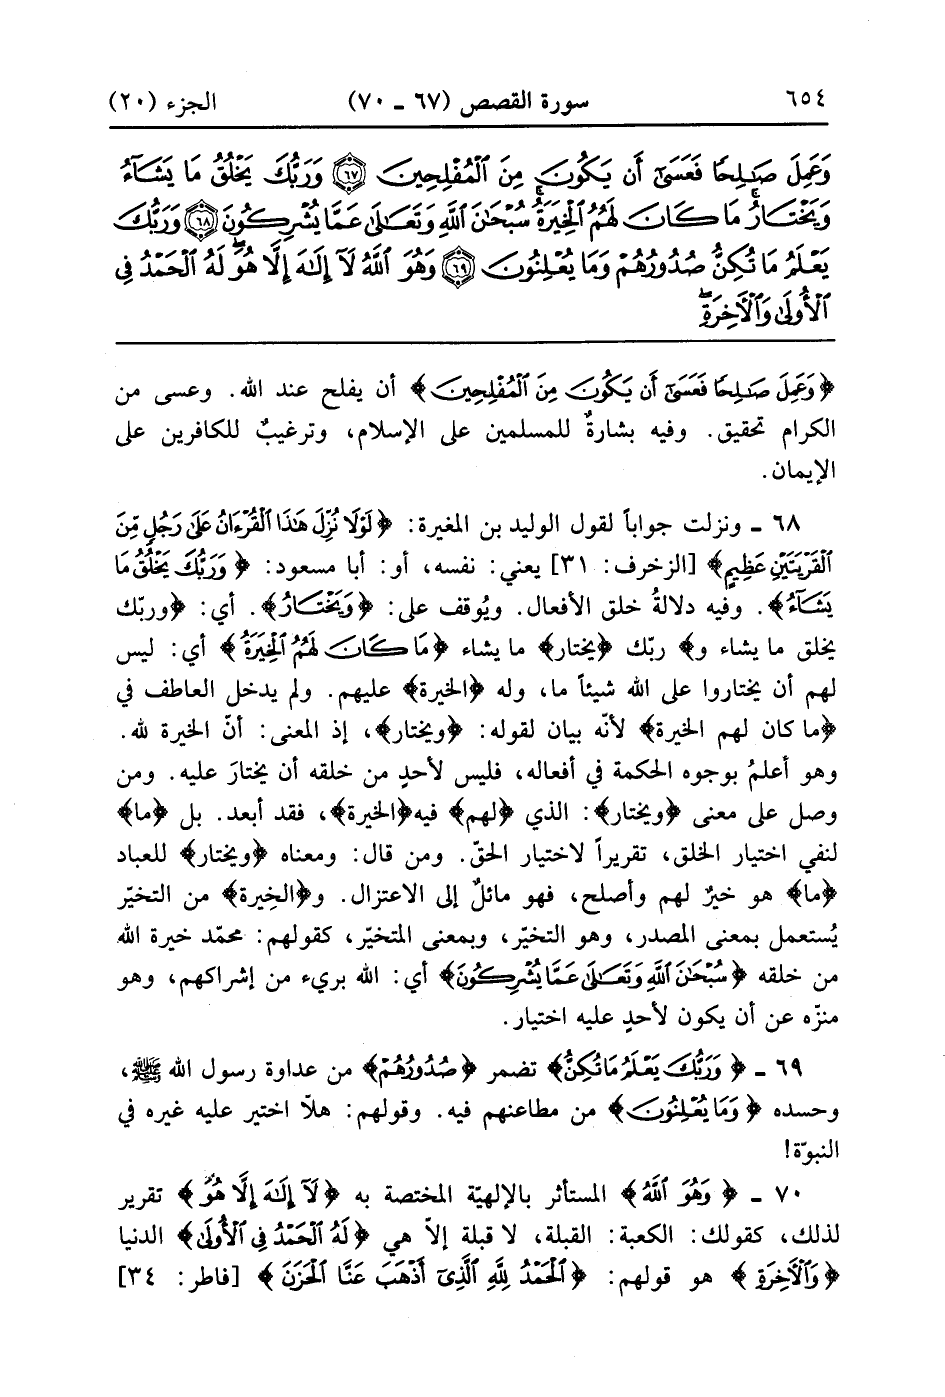 ٦٥٤ سورة القصص (٦٧ ـ ٧٠) الجزء (٢٠)
وَعَمِلَ صَٰلِحًا فَعَسَىٰٓ أَن يَكُونَ مِنَ ٱلْمُفْلِحِينَ ﴿٦٧﴾ وَرَبُّكَ يَخْلُقُ مَا يَشَآءُ
وَيَخْتَارُ ۗ مَا كَانَ لَهُمُ ٱلْخِيَرَةُ ۚ سُبْحَٰنَ ٱللَّهِ وَتَعَٰلَىٰ عَمَّا يُشْرِكُونَ ﴿٦٨﴾ وَرَبُّكَ
يَعْلَمُ مَا تُكِنُّ صُدُورُهُمْ وَمَا يُعْلِنُونَ ﴿٦٩﴾ وَهُوَ ٱللَّهُ لَآ إِلَٰهَ إِلَّا هُوَ ۖ لَهُ ٱلْحَمْدُ فِى
ٱلْأُولَىٰ وَٱلْءَاخِرَةِ ۖ
﴿وَعَمِلَ صَٰلِحًا فَعَسَىٰٓ أَن يَكُونَ مِنَ ٱلْمُفْلِحِينَ﴾ أن يفلح عند الله. وعسى من
الكرام تحقيق. وفيه بشارةٌ للمسلمين على الإسلام، وترغيبٌ للكافرين على
الإيمان.
٦٨ ـ ونزلت جواباً لقول الوليد بن المغيرة: ﴿لَوْلَا نُزِّلَ هَٰذَا ٱلْقُرْءَانُ عَلَىٰ رَجُلٍ مِّنَ
ٱلْقَرْيَتَيْنِ عَظِيمٍ﴾ [الزخرف: ٣١] يعني: نفسه، أو: أبا مسعود: ﴿وَرَبُّكَ يَخْلُقُ مَا
يَشَآءُ﴾. وفيه دلالةُ خلق الأفعال. ويُوقف على: ﴿وَيَخْتَارُ﴾. أي: ﴿وربّك
يخلق ما يشاء و﴾ ربّك ﴿يختار﴾ ما يشاء ﴿مَا كَانَ لَهُمُ ٱلْخِيَرَةُ﴾ أي: ليس
لهم أن يختاروا على الله شيئاً ما، وله ﴿الخيرة﴾ عليهم. ولم يدخل العاطف في
﴿ما كان لهم الخيرة﴾ لأنّه بيان لقوله: ﴿ويختار﴾، إذ المعنى: أنّ الخيرة لله.
وهو أعلمُ بوجوه الحكمة في أفعاله، فليس لأحدٍ من خلقه أن يختارَ عليه. ومن
وصل على معنى ﴿ويختار﴾: الذي ﴿لهم﴾ فيه﴿الخيرة﴾، فقد أبعد. بل ﴿ما﴾
لنفي اختيار الخلق، تقريراً لاختيار الحقّ. ومن قال: ومعناه ﴿ويختار﴾ للعباد
﴿ما﴾ هو خيرٌ لهم وأصلح، فهو مائلٌ إلى الاعتزال. و﴿الخِيرة﴾ من التخيّر
يُستعمل بمعنى المصدر، وهو التخيّر، وبمعنى المتخيّر، كقولهم: محمّد خيرة الله
من خلقه ﴿سُبْحَٰنَ ٱللَّهِ وَتَعَٰلَىٰ عَمَّا يُشْرِكُونَ﴾ أي: الله بريء من إشراكهم، وهو
منزّه عن أن يكون لأحدٍ عليه اختيار.
٦٩ ـ ﴿وَرَبُّكَ يَعْلَمُ مَا تُكِنُّ﴾ تضمر ﴿صُدُورُهُمْ﴾ من عداوة رسول الله ﷺ،
وحسده ﴿وَمَا يُعْلِنُونَ﴾ من مطاعنهم فيه. وقولهم: هلاّ اختير عليه غيره في
النبوّة!
٧٠ ـ ﴿وَهُوَ ٱللَّهُ﴾ المستأثر بالإلهيّة المختصة به ﴿لَآ إِلَٰهَ إِلَّا هُوَ﴾ تقرير
لذلك، كقولك: الكعبة: القبلة، لا قبلة إلاّ هي ﴿لَهُ ٱلْحَمْدُ فِى ٱلْأُولَىٰ﴾ الدنيا
﴿وَٱلْءَاخِرَةِ﴾ هو قولهم: ﴿ٱلْحَمْدُ لِلَّهِ ٱلَّذِىٓ أَذْهَبَ عَنَّا ٱلْحَزَنَ﴾ [فاطر: ٣٤]